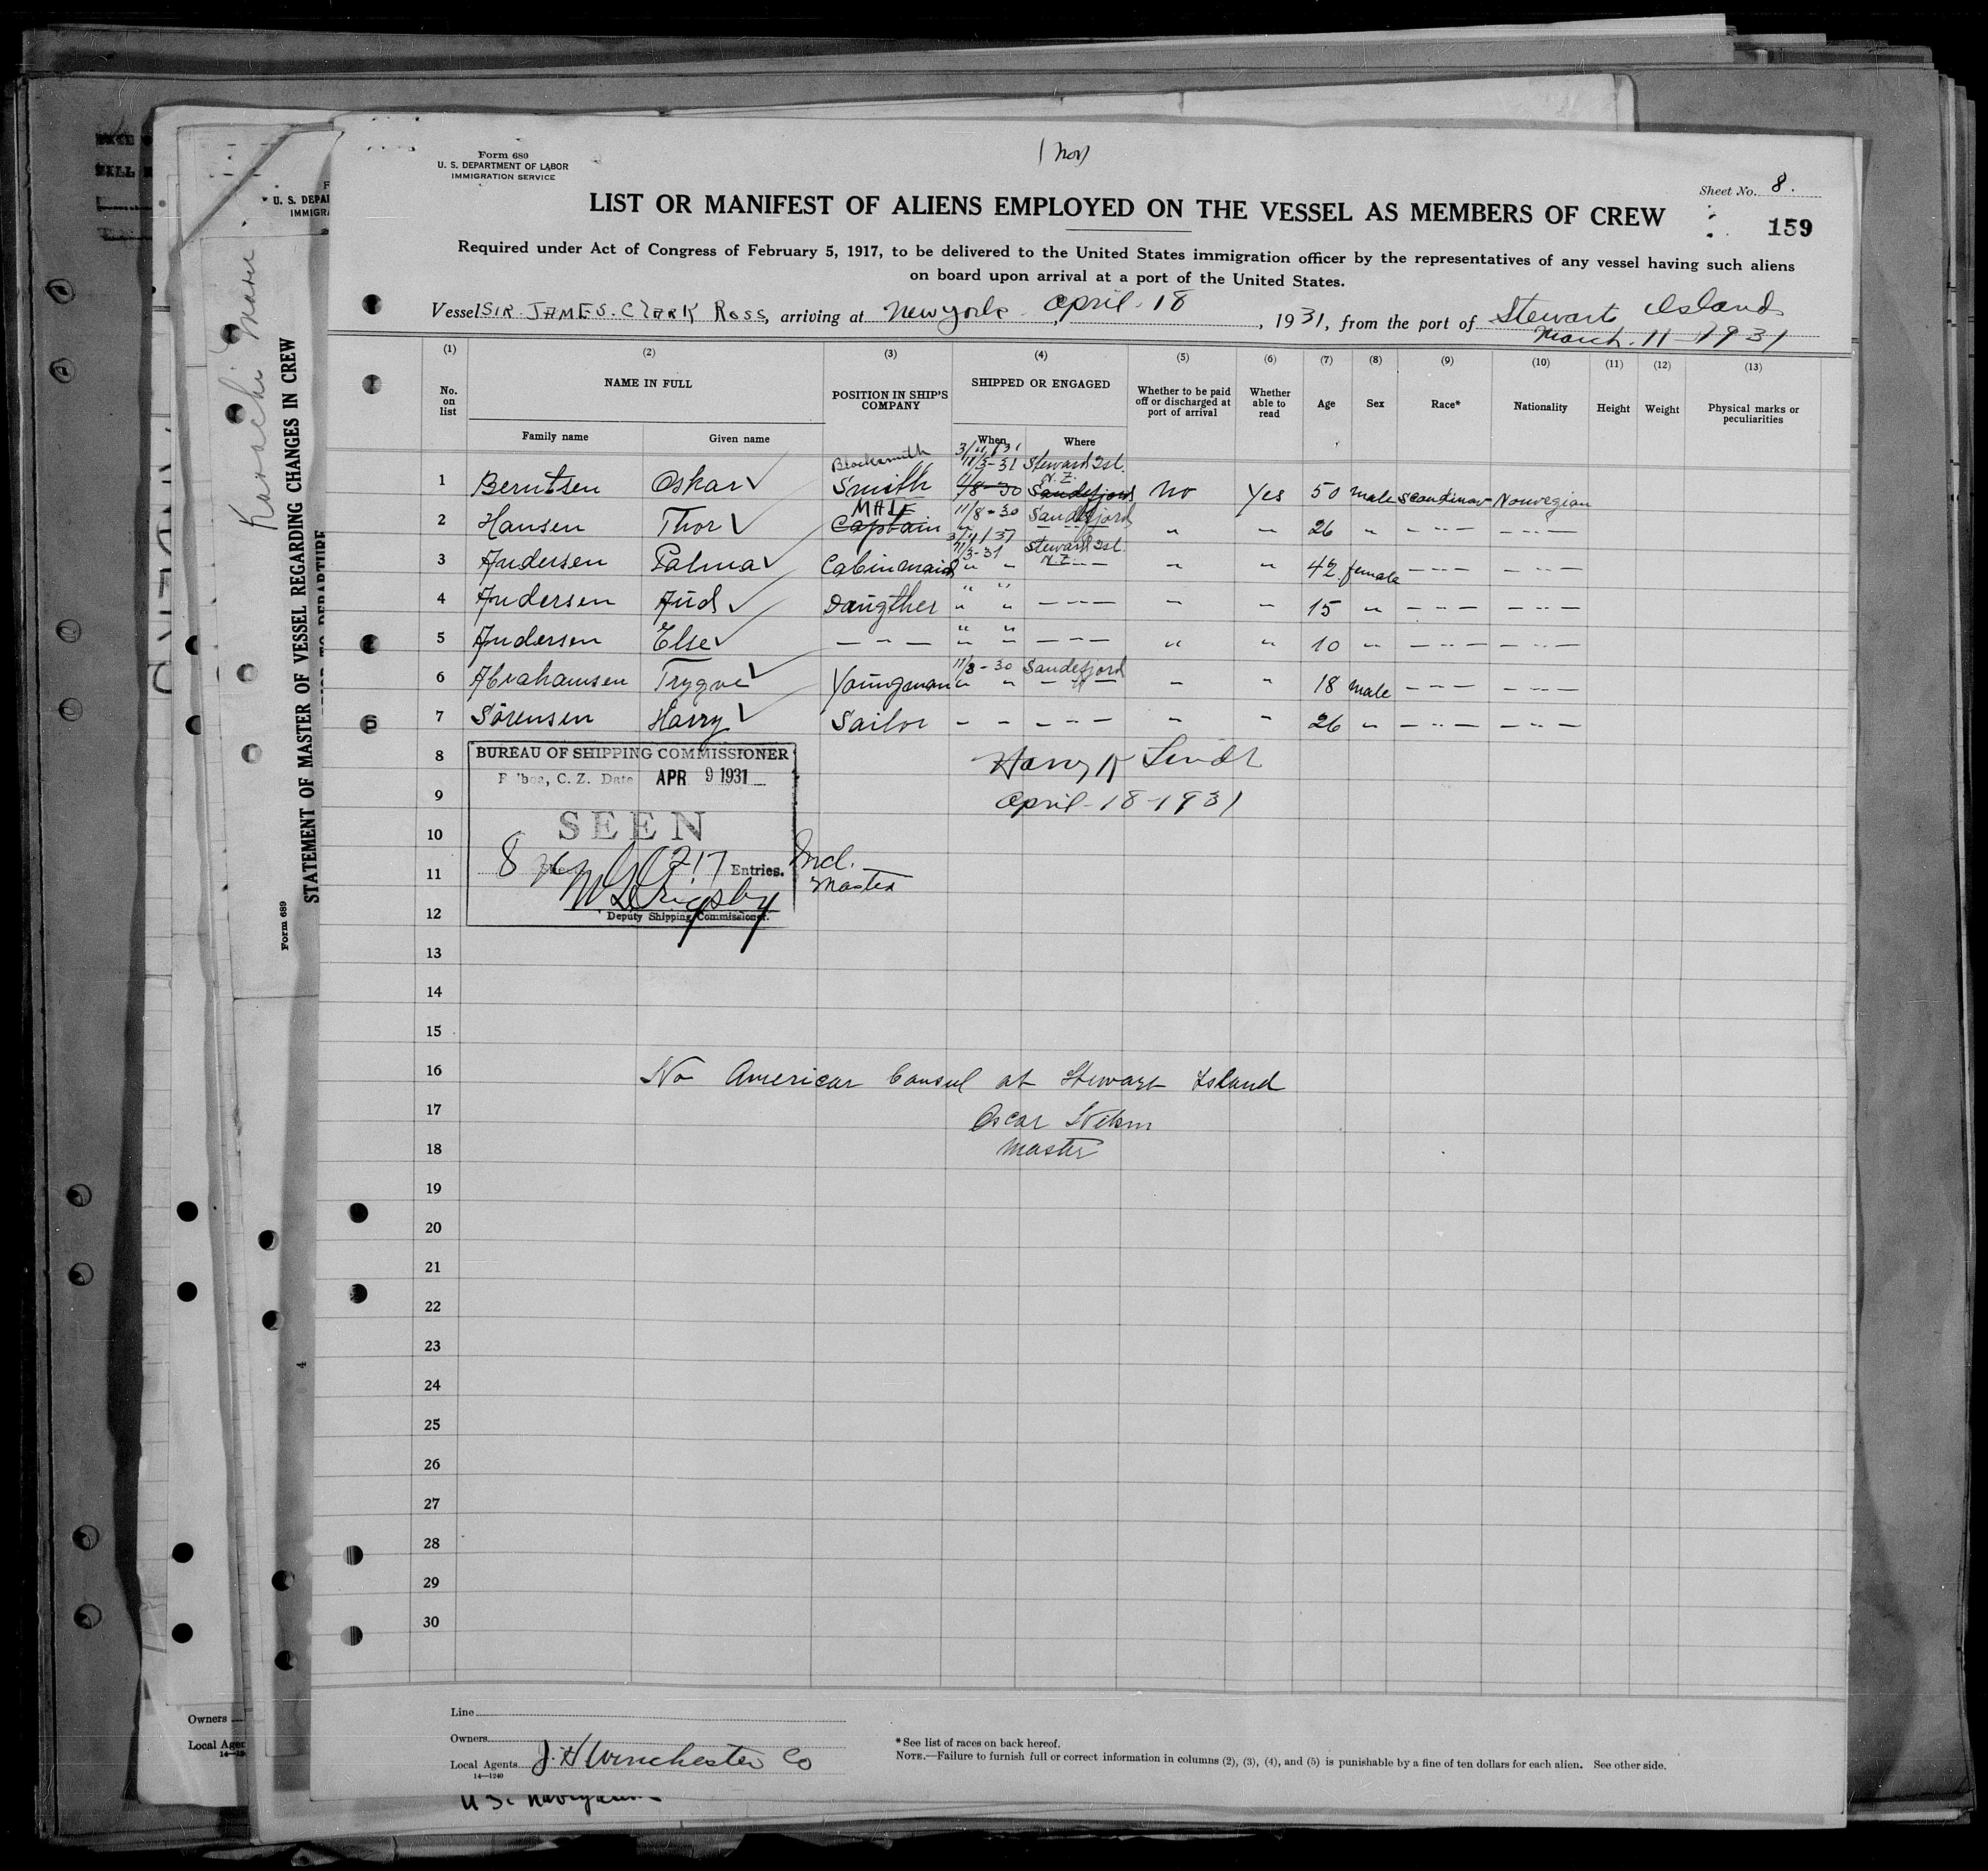 Form 680
U. S. DEPARTMENT OF LABOR
IMMIGRATION SERVICE
Sheet No. 8.
LIST OR MANIFEST OF ALIENS EMPLOYED ON THE VESSEL AS MEMBERS OF CREW
159
Required under Act of Congress of February 5, 1917, to be delivered to the United States immigration officer by the representatives of any vessel having such aliens
on board upon arrival at a port of the United States.
Vessel SIR JAMES CLARK ROSS, arriving at New York April 18, 1931, from the port of Stewart Island
March 11 1931
(1) (2) (3) (4) (5) (6) (7) (8) (9) (10) (11) (12) (13)
No. on list NAME IN FULL POSITION IN SHIP'S COMPANY SHIPPED OR ENGAGED Whether to be paid off or discharged at port of arrival Whether able to read Age Sex Race* Nationality Height Weight Physical marks or peculiarities
Family name Given name When Where
Blacksmith 3/11/31
11/3-31 Steward Isl. N.Z.
1 Berntsen Oskar Smith 11/8-30 Sandefjord No Yes 50 male Scandinav Norwegian
MATE 11/8-30 Sandefjord
2 Hansen Thor Captain " — " — " " 26 " — " — — " —
3/11/31
11/3-31 Steward Isl. N.Z.
3 Andersen Palma Cabinmaid " " — " — " " 42 female — " — — " —
4 Andersen Aud Daugther " " — " — " " 15 " — " — — " —
5 Andersen Else — " — " " — " — " " 10 " — " — — " —
11/8-30 Sandefjord
6 Abrahamsen Trygve Youngman " " — " — " " 18 male — " — — " —
7 Sörensen Harry Sailor — — — " — " " 26 " — " — — " —
8
9
10
11
12
13
14
15
16
17
18
19
20
21
22
23
24
25
26
27
28
29
30
BUREAU OF SHIPPING COMMISSIONER
Balboa, C. Z. Date APR 9 1931
SEEN
8 217 Entries. Incl.
Master
Deputy Shipping Commissioner.
Harry
April-18-1931
No American Consul at Stewart Island
Oscar Nilsen
Master
Line
Owners
Local Agents J. H Winchester Co
14—1240
* See list of races on back hereof.
NOTE.—Failure to furnish full or correct information in columns (2), (3), (4), and (5) is punishable by a fine of ten dollars for each alien. See other side.
Karachi Maru
STATEMENT OF MASTER OF VESSEL REGARDING CHANGES IN CREW
Form 689
U. S. DEPAR
IMMIGRA
4
Owners
Local Agen